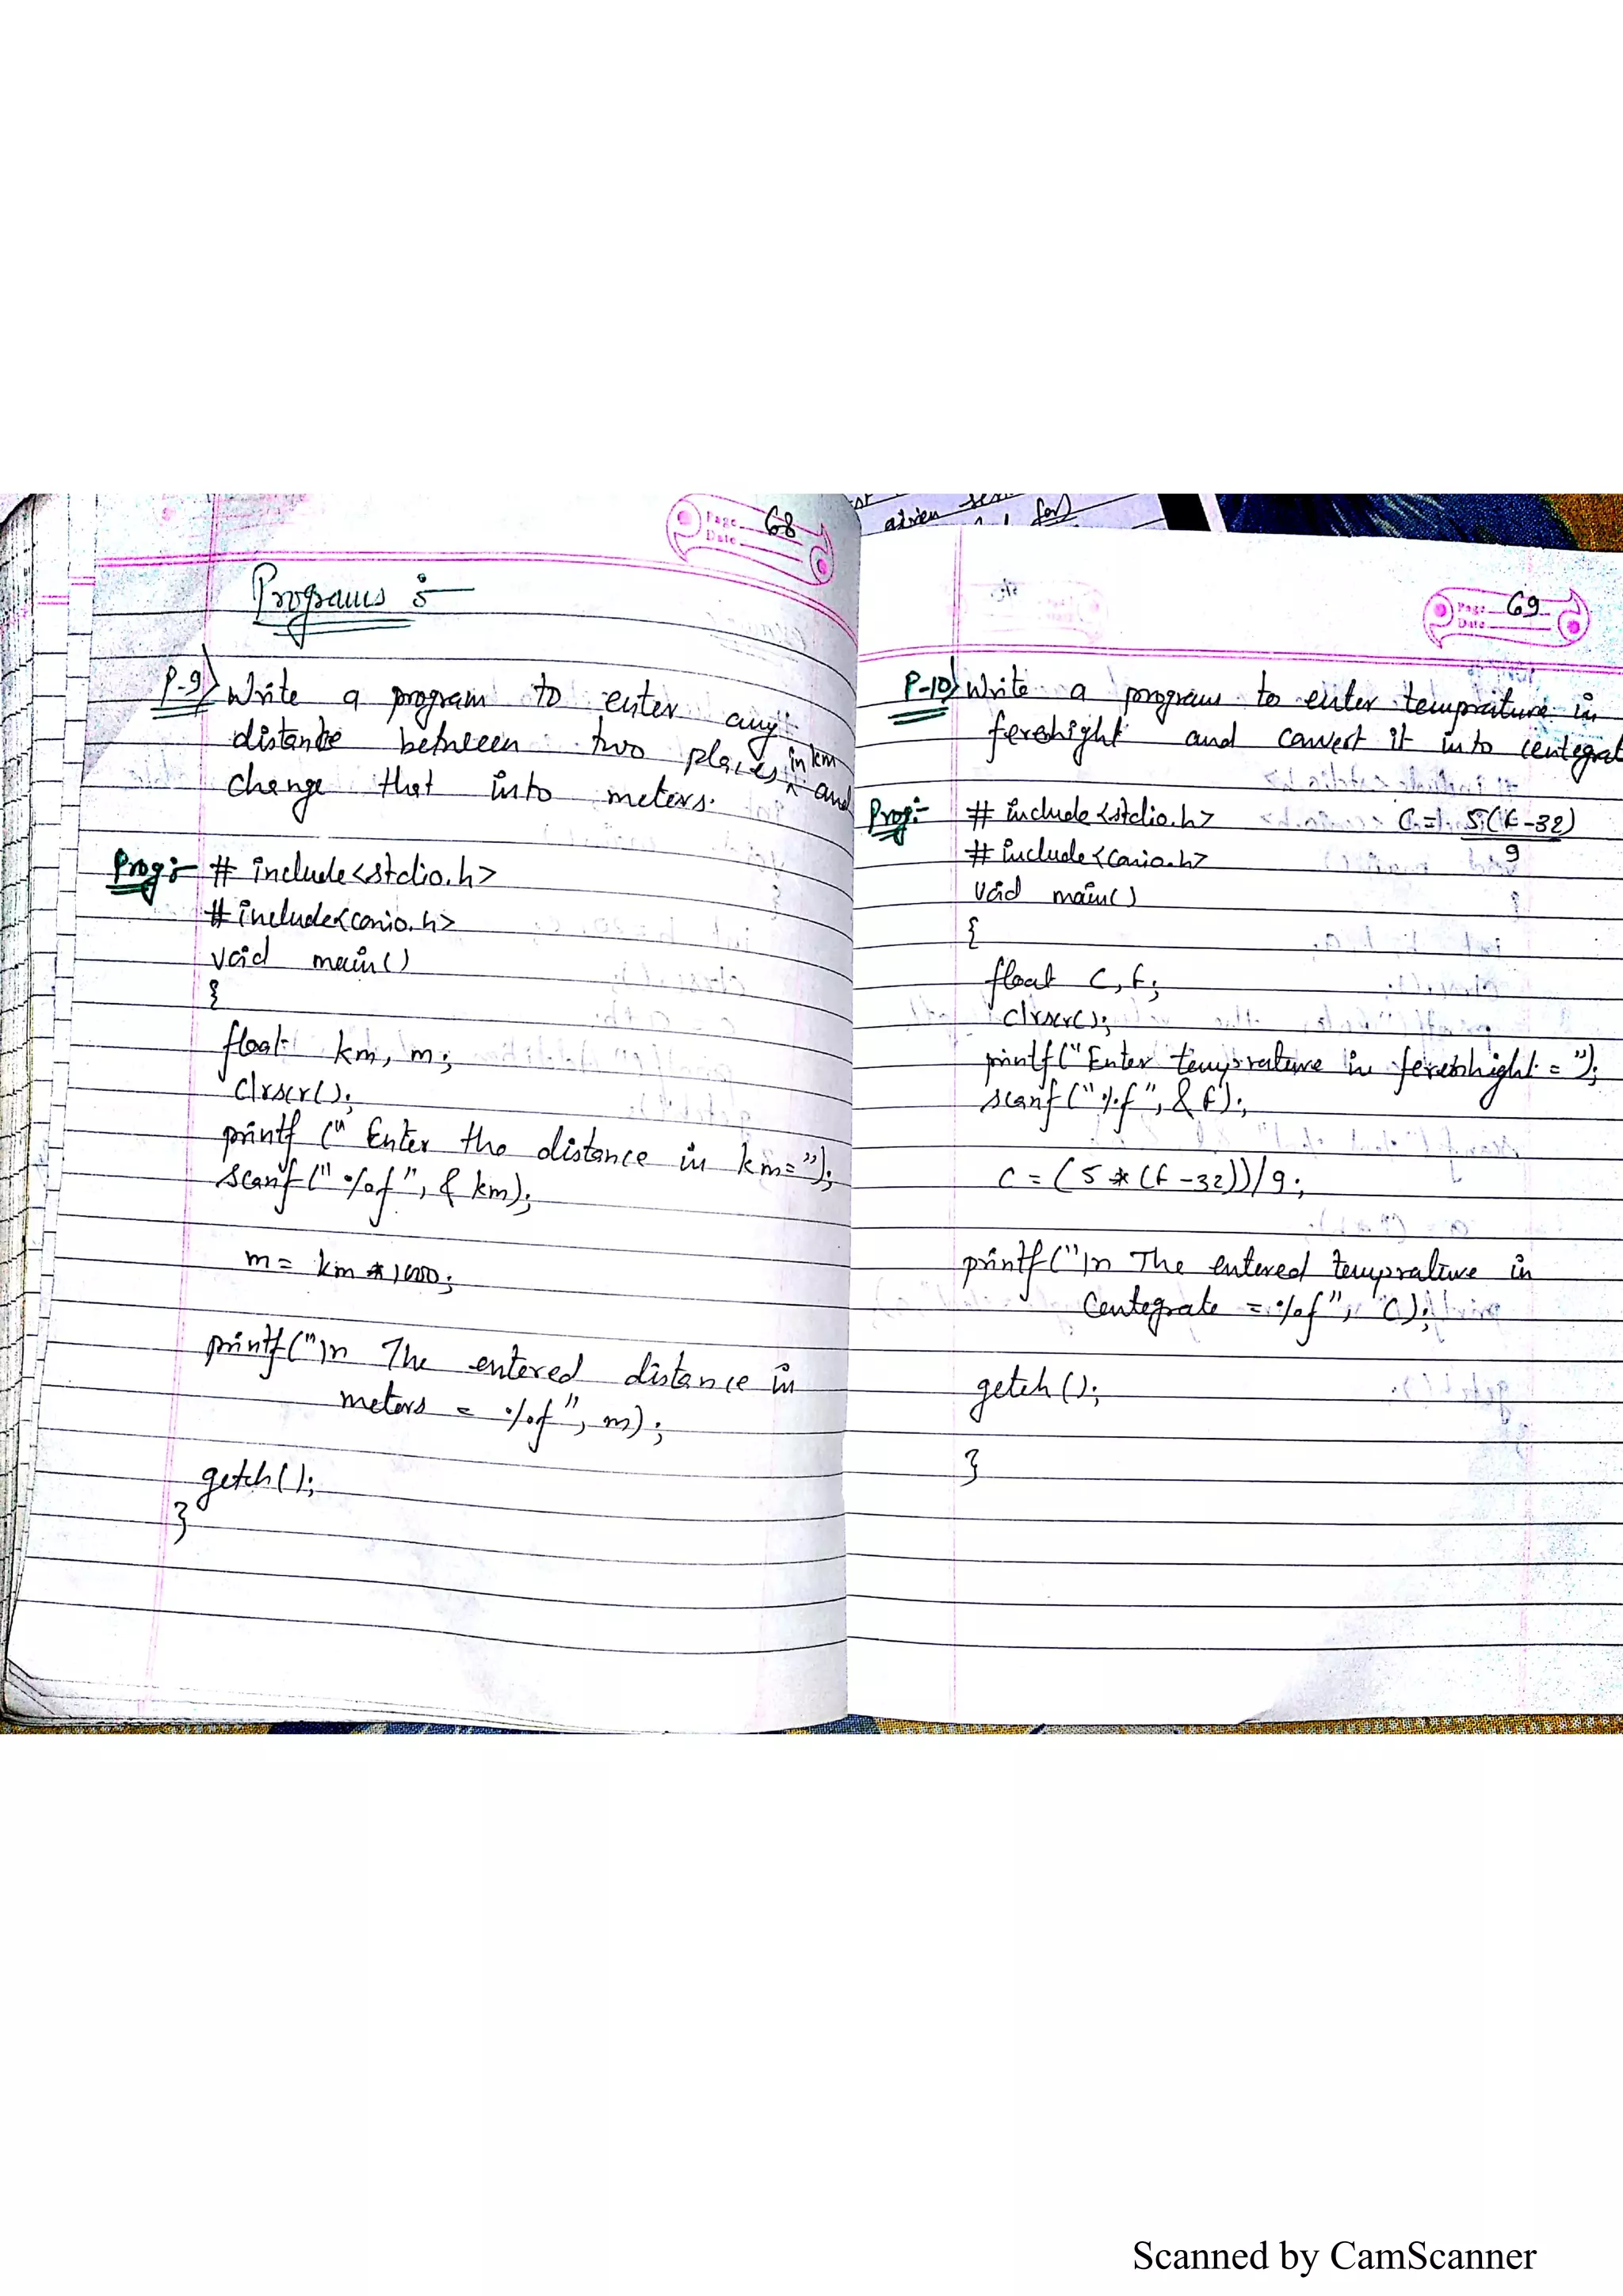 Page 68
Date
Programs :-
P-9) Write a program to enter any
distance between two places in km and
change that into meters.
Prog:- # include<stdio.h>
#include<conio.h>
void main()
{
float km, m;
clrscr();
printf (" Enter the distance in km=");
scanf (" %f", & km);
m = km * 1000;
printf("\n The entered distance in
meters = %f", m);
getch();
}
given
for)
Page 69
Date
P-10) Write a program to enter tempraiture in
ferehight and convert it into centegrat
Prog:- # include<stdio.h>
C = 5(F-32)
9
# include<conio.h>
void main()
{
float C, F;
clrscr();
printf("Enter temprature in ferenhight = ");
scanf ("%f", & F);
C = (5 * (F - 32))/9;
printf("\n The entered temprature in
Centegrate = %f", C);
getch();
}
Scanned by CamScanner